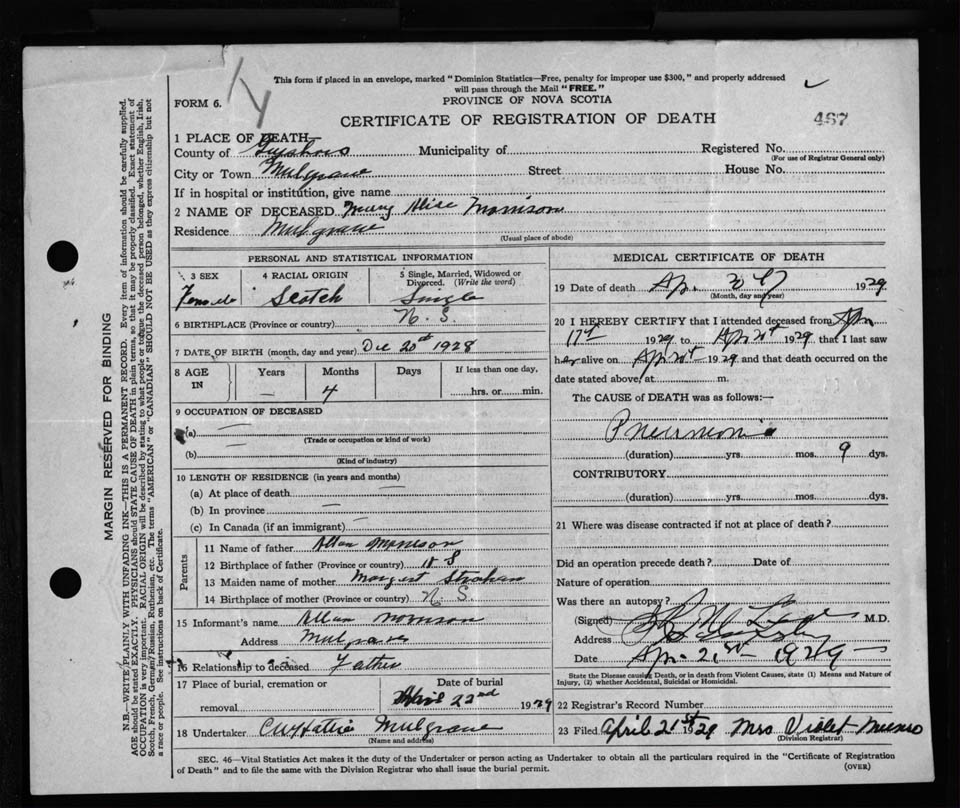 This form if placed in an envelope, marked "Dominion Statistics—Free, penalty for improper use $300," and properly addressed
will pass through the Mail "FREE."
FORM 6.
PROVINCE OF NOVA SCOTIA
CERTIFICATE OF REGISTRATION OF DEATH
467
1 PLACE OF DEATH—
County of Guysboro Municipality of Registered No.
(For use of Registrar General only)
City or Town Mulgrave Street House No.
If in hospital or institution, give name
2 NAME OF DECEASED Mary Alice Morrison
Residence Mulgrave
(Usual place of abode)
PERSONAL AND STATISTICAL INFORMATION
3 SEX 4 RACIAL ORIGIN 5 Single, Married, Widowed or Divorced. (Write the word)
Female Scotch Single
6 BIRTHPLACE (Province or country) N. S.
7 DATE OF BIRTH (month, day and year) Dec 20th 1928
8 AGE IN Years Months Days If less than one day,
— 4 hrs. or min.
9 OCCUPATION OF DECEASED
(a) —
(Trade or occupation or kind of work)
(b) —
(Kind of industry)
10 LENGTH OF RESIDENCE (in years and months)
(a) At place of death —
(b) In province —
(c) In Canada (if an immigrant) —
Parents
11 Name of father Allan Morrison
12 Birthplace of father (Province or country) N S
13 Maiden name of mother Margaret Strahan
14 Birthplace of mother (Province or country) N. S.
15 Informant's name Allan Morrison
Address Mulgrave
16 Relationship to deceased Father
17 Place of burial, cremation or removal Date of burial
April 22nd 1929
18 Undertaker Mulgrave
(Name and address)
MEDICAL CERTIFICATE OF DEATH
19 Date of death Ap. 1929
(Month, day and year)
20 I HEREBY CERTIFY that I attended deceased from Apr
17th 1929 to Apr 1929 that I last saw
her alive on Apr 1929 and that death occurred on the
date stated above, at m.
The CAUSE of DEATH was as follows:—
Pneumonia
(duration) yrs. mos. 9 dys.
CONTRIBUTORY
(duration) yrs. mos. dys.
21 Where was disease contracted if not at place of death?
Did an operation precede death? Date of
Nature of operation
Was there an autopsy?
(Signed) M.D.
Address
Date Apr. 21st 1929
State the Disease causing Death, or in death from Violent Causes, state (1) Means and Nature of
Injury, (2) whether Accidental, Suicidal or Homicidal.
22 Registrar's Record Number
23 Filed April 21st 1929 Mrs Violet Munro
(Division Registrar)
SEC. 46—Vital Statistics Act makes it the duty of the Undertaker or person acting as Undertaker to obtain all the particulars required in the "Certificate of Registration
of Death" and to file the same with the Division Registrar who shall issue the burial permit.
(OVER)
MARGIN RESERVED FOR BINDING
N.B.—WRITE PLAINLY WITH UNFADING INK—THIS IS A PERMANENT RECORD. Every item of information should be carefully supplied.
AGE should be stated EXACTLY. PHYSICIANS should STATE CAUSE OF DEATH in plain terms, so that it may be properly classified. Exact statement of
OCCUPATION is very important. RACIAL ORIGIN will be described by stating to what people or tongue the deceased person belonged, whether English, Irish,
Scotch, French, German, Russian, Ruthenian, etc. The terms "AMERICAN" or "CANADIAN" SHOULD NOT BE USED as they express citizenship but not
a race or people. See instructions on back of Certificate.